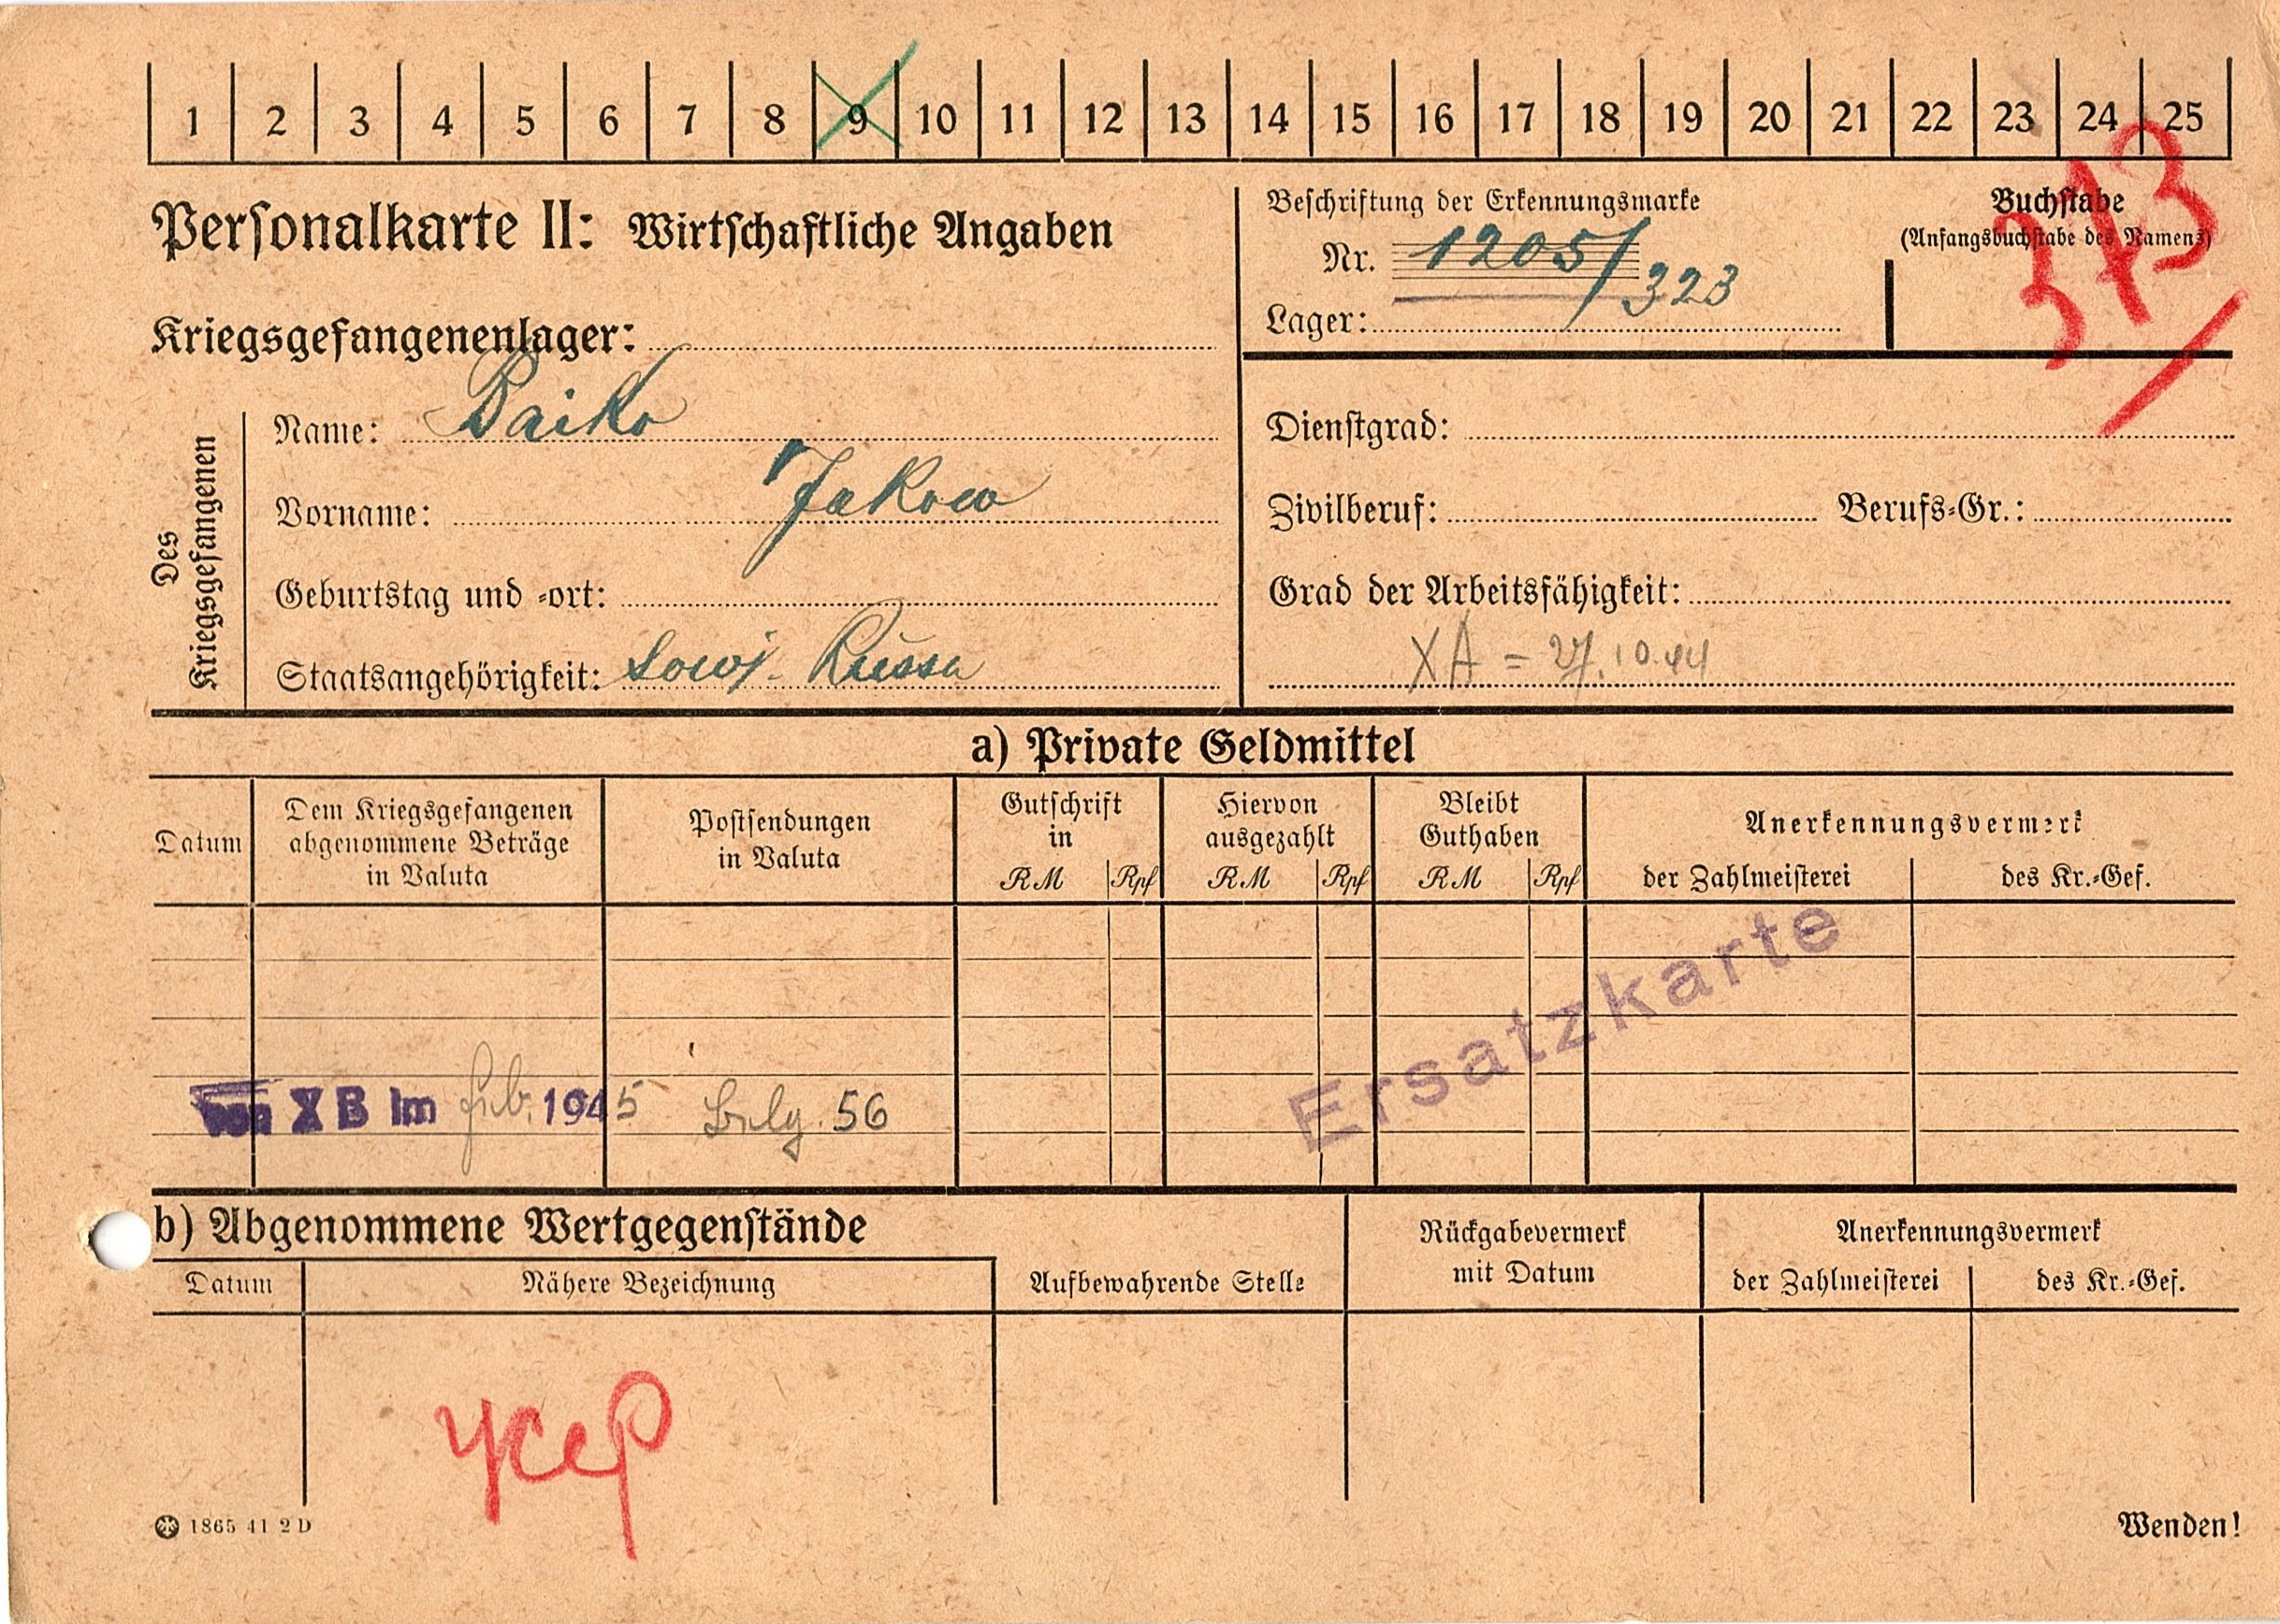 1 2 3 4 5 6 7 8 9 10 11 12 13 14 15 16 17 18 19 20 21 22 23 24 25
Personalkarte II: Wirtschaftliche Angaben
Beschriftung der Erkennungsmarke
Nr. 1205/323
Lager:
Buchstabe
(Anfangsbuchstabe des Namens)
373
Kriegsgefangenenlager:
Des Kriegsgefangenen
Name: Baiko
Vorname: Jakow
Geburtstag und -ort:
Staatsangehörigkeit: Sowj. Russe
Dienstgrad:
Zivilberuf: Berufs-Gr.:
Grad der Arbeitsfähigkeit:
XA = 27.10.44
a) Private Geldmittel
Datum
Dem Kriegsgefangenen
abgenommene Beträge
in Valuta
Postsendungen
in Valuta
Gutschrift
in
RM Rpf
Hiervon
ausgezahlt
RM Rpf
Bleibt
Guthaben
RM Rpf
Anerkennungsvermerk
der Zahlmeisterei des Kr.-Gef.
Ersatzkarte
von X B im Feb. 1945 Belg. 56
b) Abgenommene Wertgegenstände
Datum Nähere Bezeichnung
Aufbewahrende Stelle
Rückgabevermerk
mit Datum
Anerkennungsvermerk
der Zahlmeisterei des Kr.-Gef.
усер
1865 41 2 D
Wenden!